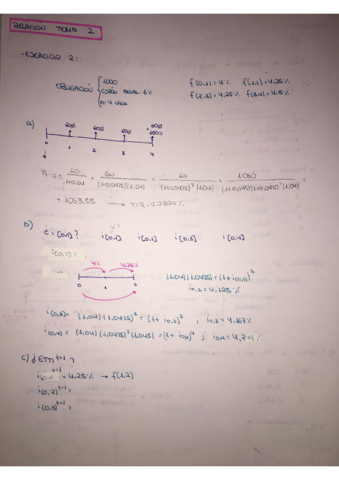 RELACIÓN TEMA 2
· EJERCICIO 2:
OBLIGACIÓN
1000
CUPÓN ANUAL: 6%
n: 4 años
f(0,1) = 4% f(1,1) = 4,25%
f(2,3) = 4,25% f(3,4) = 4,5%
a)
60$ 60$ 60$ 60$
1000
0 1 2 3 4
60/1+0,04 + 60/(1+0,0425)(1,04) + 60/(1+0,0425)²(1,04) + 1060/(1+0,045)(1+0,0425)²(1,04) =
= 1063,55 → TIR: 4,2391%
b) ¿i(0,n)? i(0,1) i(0,2) i(0,3) i(0,4)
4%
i(0,1) =
4% 4,25%
0 1 2
(1,04)(1,0425) = (1 + i(0,2))²
i0,2 = 4,125%
i(0,3) = (1,04)(1,0425)² = (1 + i0,3)³ , i0,3 = 4,167%
i(0,4) = (1,04)(1,0425)²(1,045) = (1 + i0,4)⁴ ; i0,4 = 4,25%
c) ¿ETTI t+1?
= 4,25% → f(1,2)
i(0,2) t+1 =
i(0,3) t+1 =